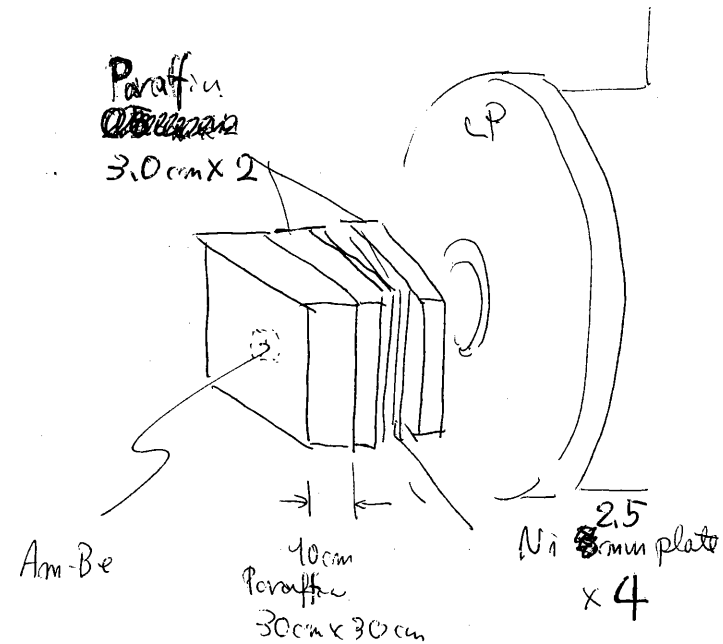 Paraffin
3.0 cm × 2
LP
Am-Be
10cm
Paraffin
30cm × 30cm
2.5
Ni mm plate
× 4